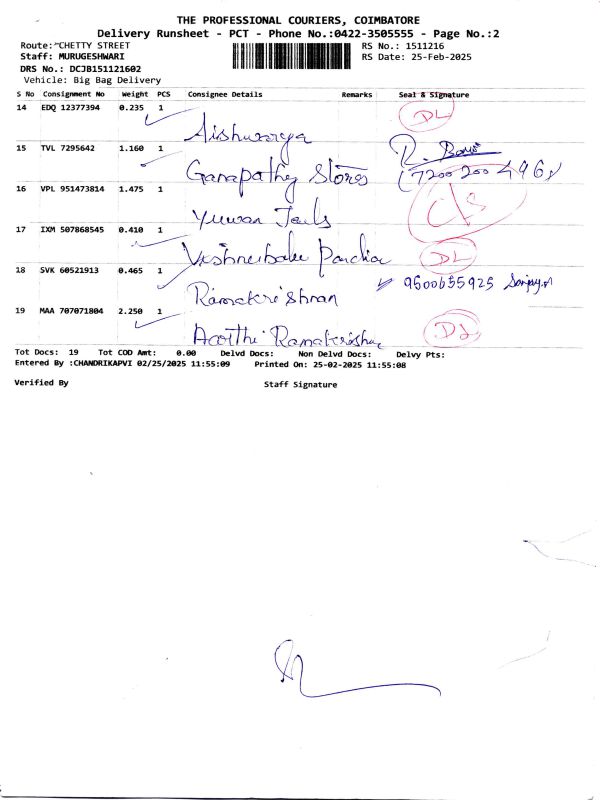 THE PROFESSIONAL COURIERS, COIMBATORE
Delivery Runsheet - PCT - Phone No.:0422-3505555 - Page No.:2
Route:~CHETTY STREET RS No.: 1511216
Staff: MURUGESHWARI RS Date: 25-Feb-2025
DRS No.: DCJB151121602
Vehicle: Big Bag Delivery
S No Consignment No Weight PCS Consignee Details Remarks Seal & Signature
14 EDQ 12377394 0.235 1 DL
Aishwarya
15 TVL 7295642 1.160 1 R.
Ganapathy Stores (7200 200 496)
16 VPL 951473814 1.475 1
Yuwan
17 IXM 507868545 0.410 1
DL
18 SVK 60521913 0.465 1
Ramakrishnan 9500655925 Sanjay.n
19 MAA 707071804 2.250 1
Ramakrishna DL
Tot Docs: 19 Tot COD Amt: 0.00 Delvd Docs: Non Delvd Docs: Delvy Pts:
Entered By :CHANDRIKAPVI 02/25/2025 11:55:09 Printed On: 25-02-2025 11:55:08
Verified By Staff Signature